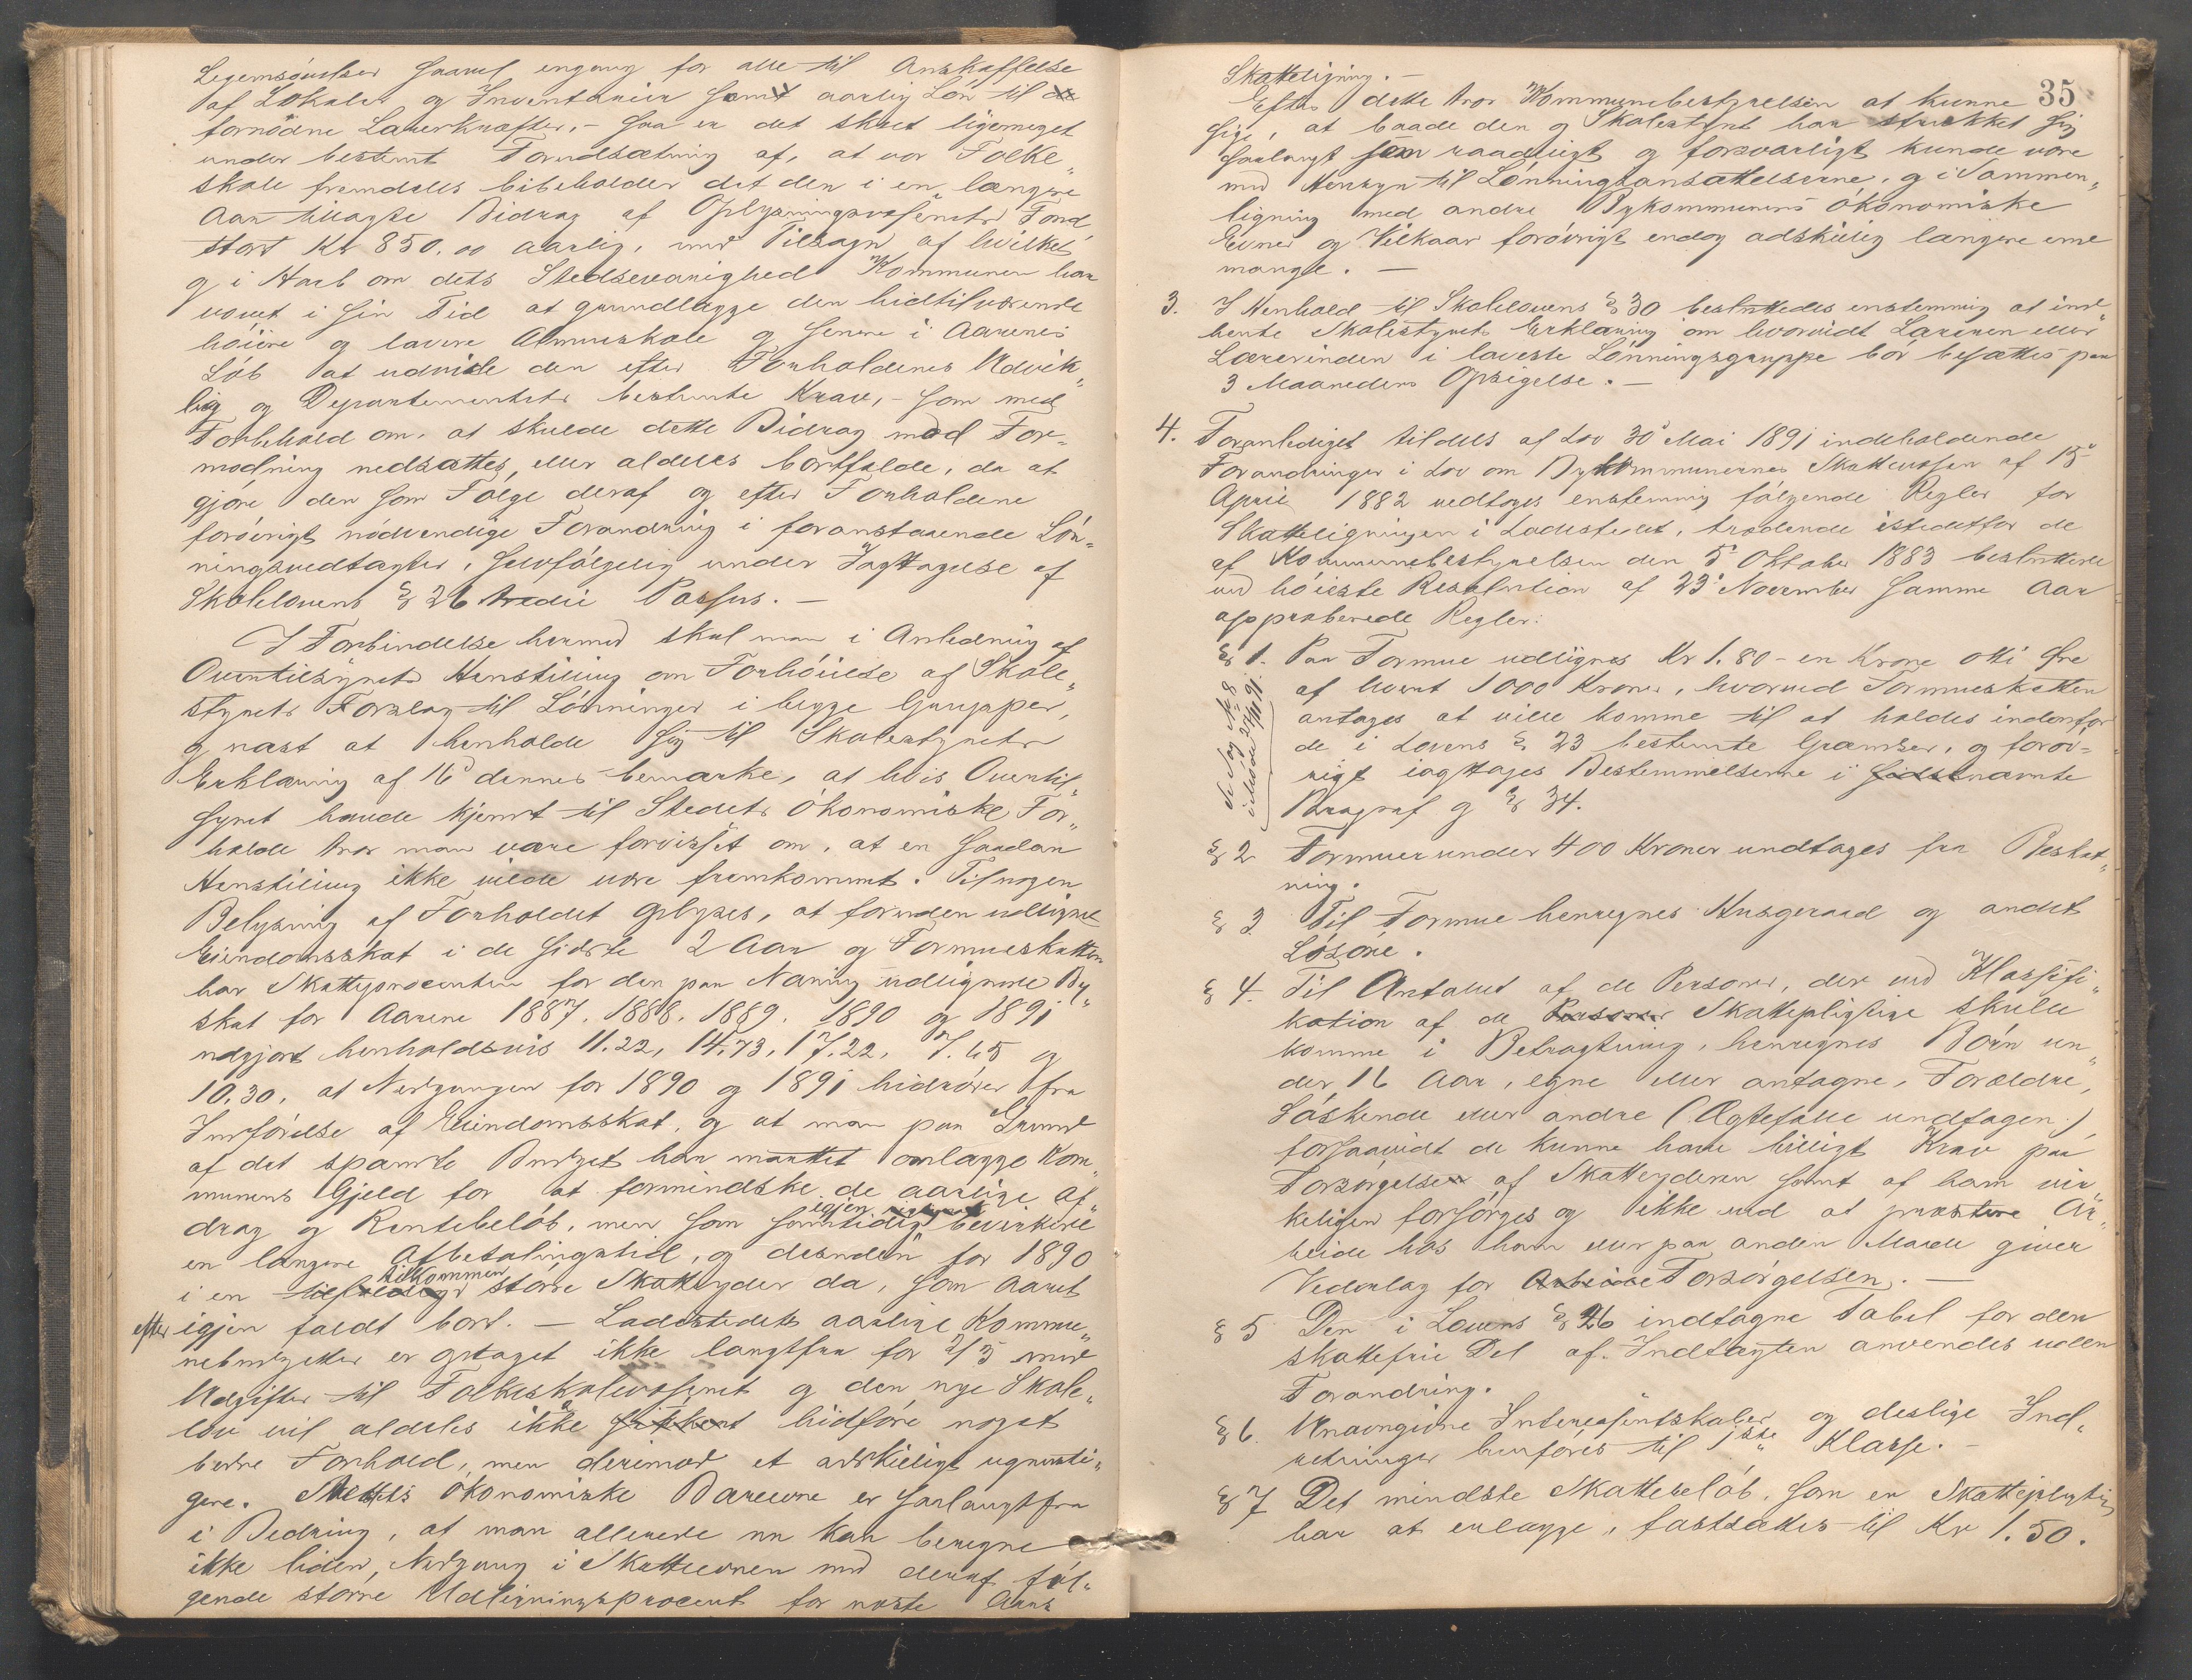 Legemsøvelser saavel engang for alle til Anskaffelse
af Lokaler og Inventarier samt aarlig Løn til de
fornødne Lærerkræfter, - saa er det skeet ligemeget
under bestemt Forudsætning af, at vor Folke„
skole fremdeles bibeholder det den i en længere
Aar tillagte Bidrag af Oplysningsvæsenets Fond
stort Kr 850.00 aarlig, med Tilsagn af hvilket
og i Haab om dets Stedsevarighed Kommunen har
vovet i sin Tid at grundlægge den hidtilværende
høiere og lavere Almueskole og senere i Aarenes
Løb at udvide den efter Forholdenes Udvik„
ling og Departementets bestemte Krav, - som med
Forbehold om, at skulde dette Bidrag mod For-
modning nedsættes, eller aldeles bortfalde, da at
gjøre den som Følge deraf og efter Forholdene
forøvrigt nødvendige Forandring i foranstaaende Løn„
ningsvedtægter, selvfølgelig under Iagttagelse af
Skolelovens § 26 tredie Passus. —
I Forbindelse hermed skal man i Anledning af
Overtilsynets Henstilling om Forhøielse af Skole„
styrets Forslag til Lønninger i begge Grupper,
og næst at henholde sig til Skolestyrets
Erklæring af 16d dennes bemærke, at hvis Overtil„
synet havde kjendt til Stedets økonomiske For„
holde tror man være forvisset om, at en saadan
Henstilling ikke vilde være fremkommet. Til nogen
Belysning af Forholdet oplyses, at foruden udlignet
Eiendomsskat i de sidste 2 Aar og Formueskatten
har Skatteprocenten for den paa Næring udlignede By„
skat for Aarene 1887, 1888, 1889, 1890 og 1891
udgjort henholdsvis 11.22, 14.73, 17.22, 7.65 og
10.30, at Nedgangen for 1890 og 1891 hidrører fra
Indførelse af Eiendomsskat, og at man paa Grund
af det spændte Budget har maattet omlægge Kom„
munens Gjeld for at formindske de aarlige Af„
drag og Rentebeløb, men som samtidig igjen bevirkede
en længere Afbetalingstid, og desuden for 1890
i en tilkommen større Skatteyder da, som Aaret
efter igjen faldt bort. — Ladestedets aarlige Kommu„
nebudgetter er optaget ikke langtfra for 2/3 med
Udgifter til Folkeskolevæsenet og den nye Skole„
lov vil aldeles ikke hidføre noget
bedre Forhold, men derimod et adskilligt ugunsti„
gere. Stedets økonomiske Bæreevne er saalangtfra
i Bedring, at man allerede nu kan beregne
ikke liden Nedgang i Skatteevnen med deraf føl„
gende større Udligningsprocent for næste Aars
35
Skatteligning. —
Efter dette tror Kommunebestyrelsen at kunne
sige, at baade den og Skolestyret har strukket sig
saalangt som raadeligt og forsvarligt kunde være
med Hensyn til Lønningsansættelserne, og i Sammen„
ligning med andre Bykommuners økonomiske
Evner og Vilkaar forøvrigt endog adskillig længere end
mange. —
3. I Henhold til Skolelovens § 30 besluttedes enstemmig at ind„
hente Skolestyrets Erklæring om hvorvidt Læreren eller
Lærerinden i laveste Lønningsgruppe bør besættes paa
3 Maaneders Opsigelse. —
4. Foranlediget tildels af Lov 30d Mai 1891 indeholdende
Forandringer i Lov om Bykommunernes Skattevæsen af 15d
April 1882 vedtoges enstemmig følgende Regler for
Skatteligningen i Ladestedet, trædende istedetfor de
af Kommunebestyrelsen den 5d Oktober 1883 besluttede
ved høieste Resolution af 23d November samme Aar
approberede Regler:
§ 1. Paa Formue udlignes Kr 1.80 - en Krone otti Øre
af hvert 1000 Kroner, hvorved Formueskatten
antages at ville komme til at holdes indenfor
de i Lovens § 23 bestemte Grændser, og forøv-
rigt iagttages Bestemmelserne i sidstnævnte
Paragraf og § 34.
Se Sag No 8
i Møde 24/11 91.
§ 2 Formuer under 400 Kroner undtages fra Beskat„
ning.
§ 3 Til Formue henregnes Husgeraad og andet
Løsøre.
§ 4. Til Antallet af de Personer, der ved Klassifi„
kation af de Skattepligtige skulle
komme i Betragtning, henregnes Børn un„
der 16 Aar, egne eller antagne, Forældre,
Søskende eller andre (Ægtefælle undtagen)
forsaavidt de kunne have billigt Krav paa
Forsørgelse af Skatteyderen samt af ham vir„
keligen forsørges og ikke ved at præstere Ar„
beide hos ham eller paa anden Maade giver
Vederlag for Forsørgelsen. —
§ 5 Den i Lovens § 26 indtagne Tabel for den
skattefrie Del af Indtægten anvendes uden
Forandring.
§ 6. Unavngivne Interessentskaber og deslige Ind„
retninger henføres til 1ste Klasse. —
§ 7 Det mindste Skattebeløb, som en Skattepligtig
har at erlægge, fastsættes til Kr 1.50.